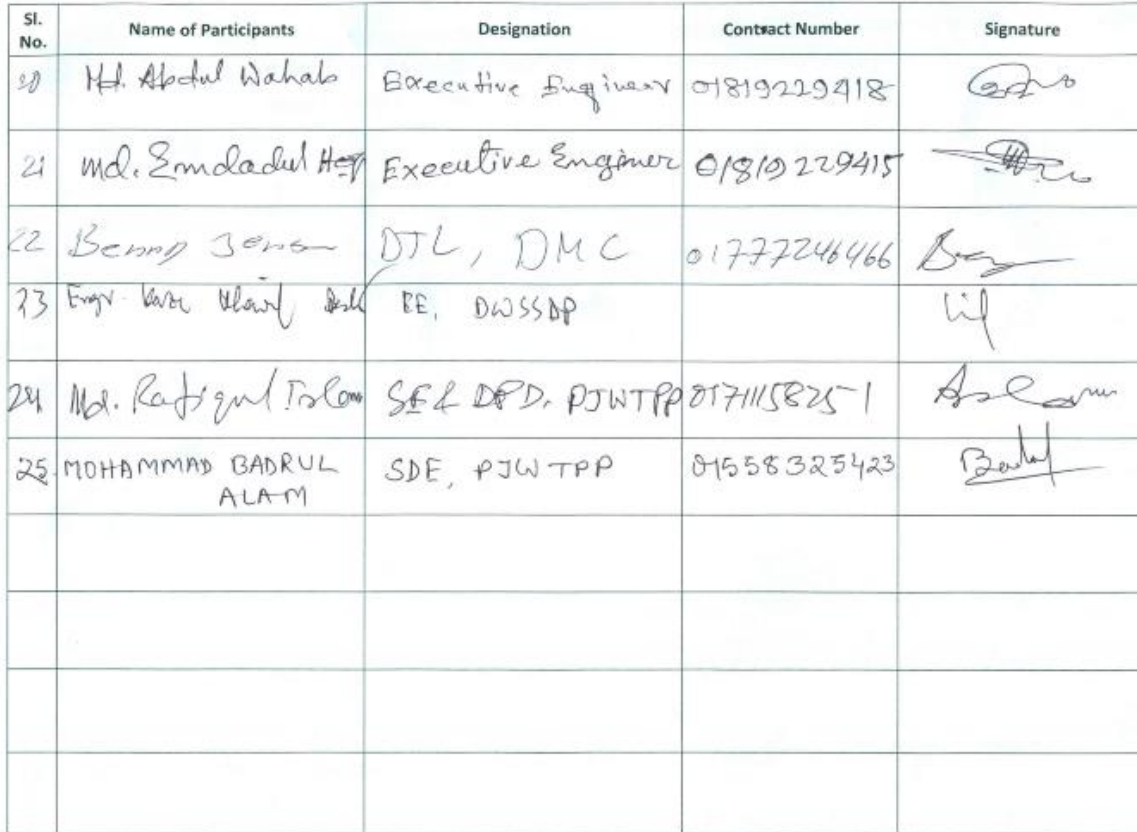 Sl. No. Name of Participants Designation Contract Number Signature
20 Md. Abdul Wahab Executive Engineer 01819229418
21 Md. Emdadul Executive Enginer 01819229415
22 Benny Jensen DTL, DMC 01777246466
23 Engr. EE, DWSSDP
24 Md. Rafiqul Islam SE & DPD. PJWTPP 01711158251 Aslam
25 MOHAMMAD BADRUL SDE, PJWTPP 01558325423 Badrul
ALAM